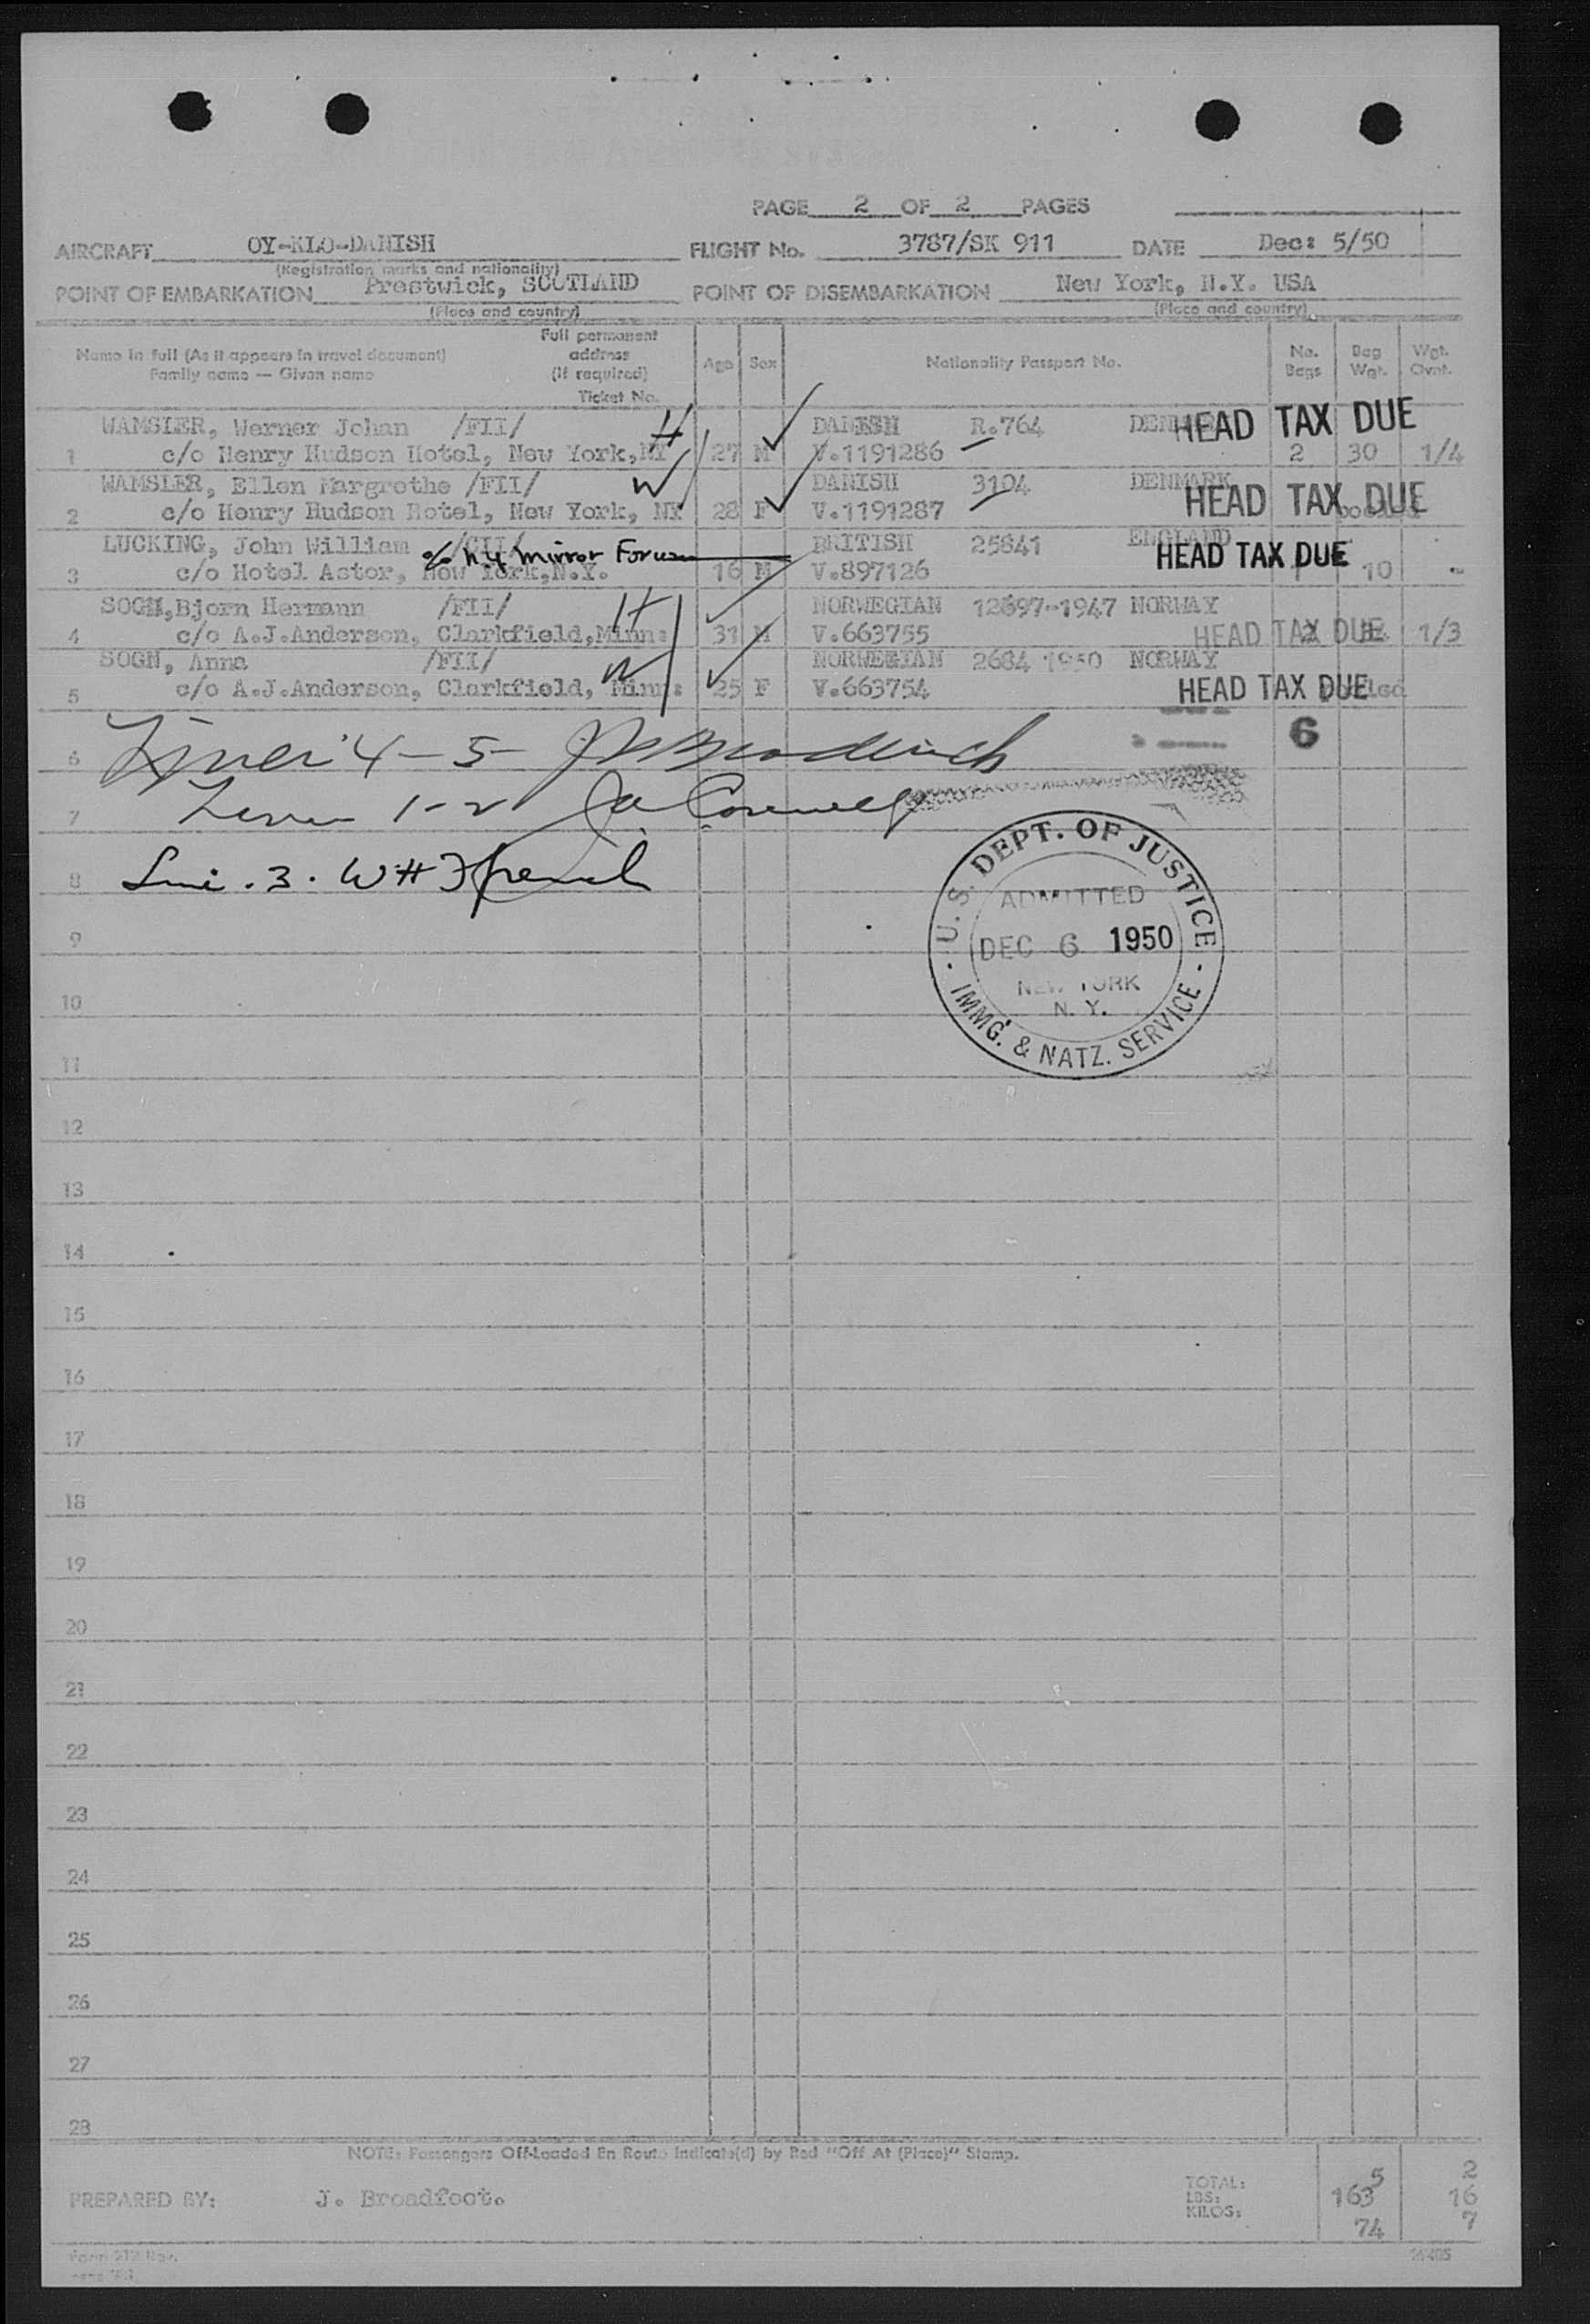 PAGE 2 OF 2 PAGES
AIRCRAFT OY-KLO-DANISH FLIGHT No. 3787/SK 911 DATE Dec: 5/50
(Registration marks and nationality)
POINT OF EMBARKATION Prestwick, SCOTLAND POINT OF DISEMBARKATION New York, N.Y. USA
(Place and country) (Place and country)
Name in full (As it appears in travel document)
Family name — Given name
Full permanent
address
(If required)
Ticket No.
Age Sex Nationality Passport No. No. Bags Bag Wgt. Wgt. Ovnt.
WAMSLER, Werner Johan /FII/ H DANISH R.764 HEAD TAX DUE
1 c/o Henry Hudson Hotel, New York, NY 27 M V.1191286 2 30 1/4
WAMSLER, Ellen Margrethe /FII/ W DANISH 3104 DENMARK HEAD TAX DUE
2 c/o Henry Hudson Hotel, New York, NY 28 F V.1191287
LUCKING, John William /CII/ BRITISH 25841 ENGLAND HEAD TAX DUE
c/o N.Y Mirror Forum
3 c/o Hotel Astor, New York,N.Y. 16 M V.897126 1 10 -
SOGN,Bjorn Hermann /FII/ H NORWEGIAN 12697-1947 NORWAY
4 c/o A.J.Anderson, Clarkfield,Minn: 31 M V.663755 HEAD TAX DUE 1/3
SOGN, Anna /FII/ W NORWEGIAN 2684 1950 NORWAY
5 c/o A.J.Anderson, Clarkfield, Minn: 25 F V.663754 HEAD TAX DUE
6
6 4-5
7 1-2
8 3. WH French
U.S. DEPT. OF JUSTICE
ADMITTED
DEC 6 1950
NEW YORK
N. Y.
IMMG. & NATZ. SERVICE
9
10
11
12
13
14
15
16
17
18
19
20
21
22
23
24
25
26
27
28
NOTE: Passengers Off-Loaded En Route Indicate(d) by Red "Off At (Place)" Stamp.
PREPARED BY: J. Broadfoot.
TOTAL: 5 2
LBS: 163 16
KILOS: 74 7